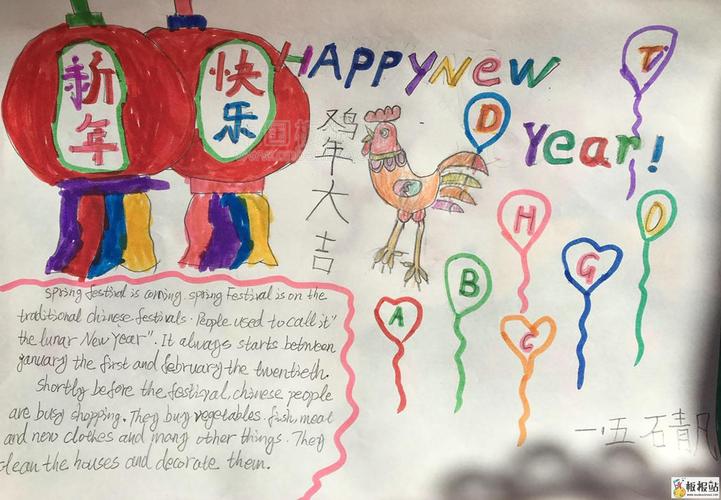 新年
快乐
HAPPY NEW
Year!
鸡年大吉
T
D
H
O
G
B
A
C
spring festival is coming. spring Festival is on the
traditional chinese festivals. People used to call it"
the lunar New year". It always starts between
january the first and february the twentieth.
Shortly before the festival, chinese people
are busy shopping. They buy vegetables. fish, meat
and new clothes and many other things. They
clean the houses and decorate them.
一.五 石青凡
板报站